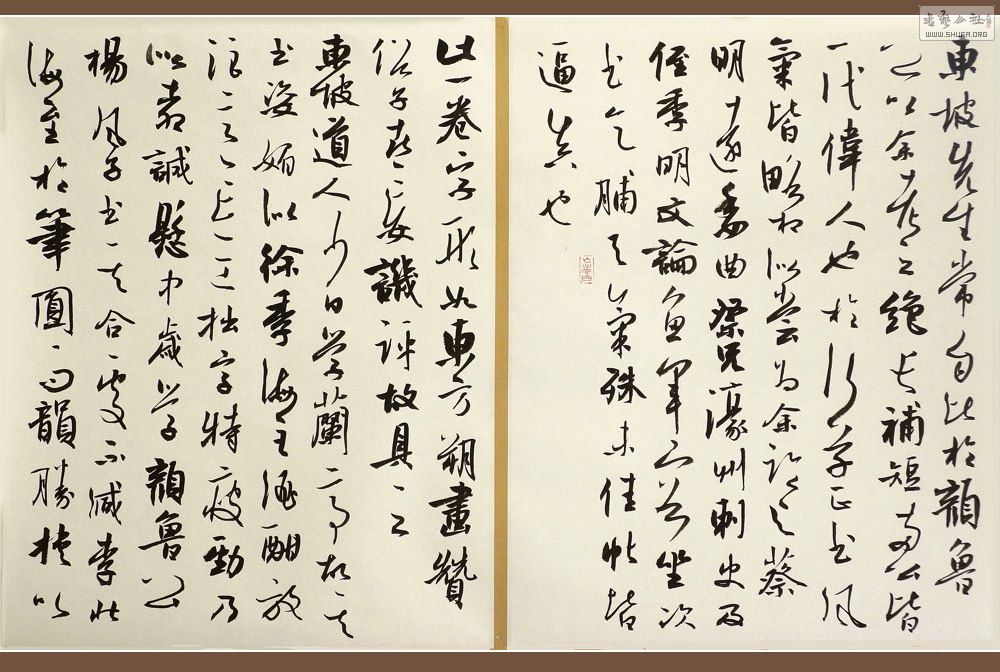 東坡先生常自比於顏魯
公以余考之絕長補短兩公皆
一代偉人也於行草正書風
氣皆略相似嘗為余臨與蔡
明遠委曲祭兄濠州刺史及
侄季明文論魚軍容坐次
書乞脯天氣殊未佳帖皆
逼真也
此一卷字形如東方朔畫贊
俗子喜妄譏評故具之
東坡道人少日學蘭亭故其
書姿媚似徐季海至酒酣放
浪意忘工拙字特瘦勁乃
似柳誠懸中歲學顏魯公
楊風子書其合處不減李北
海至於筆圓而韻勝挾以
書藝公社
WWW.SHUFA.ORG